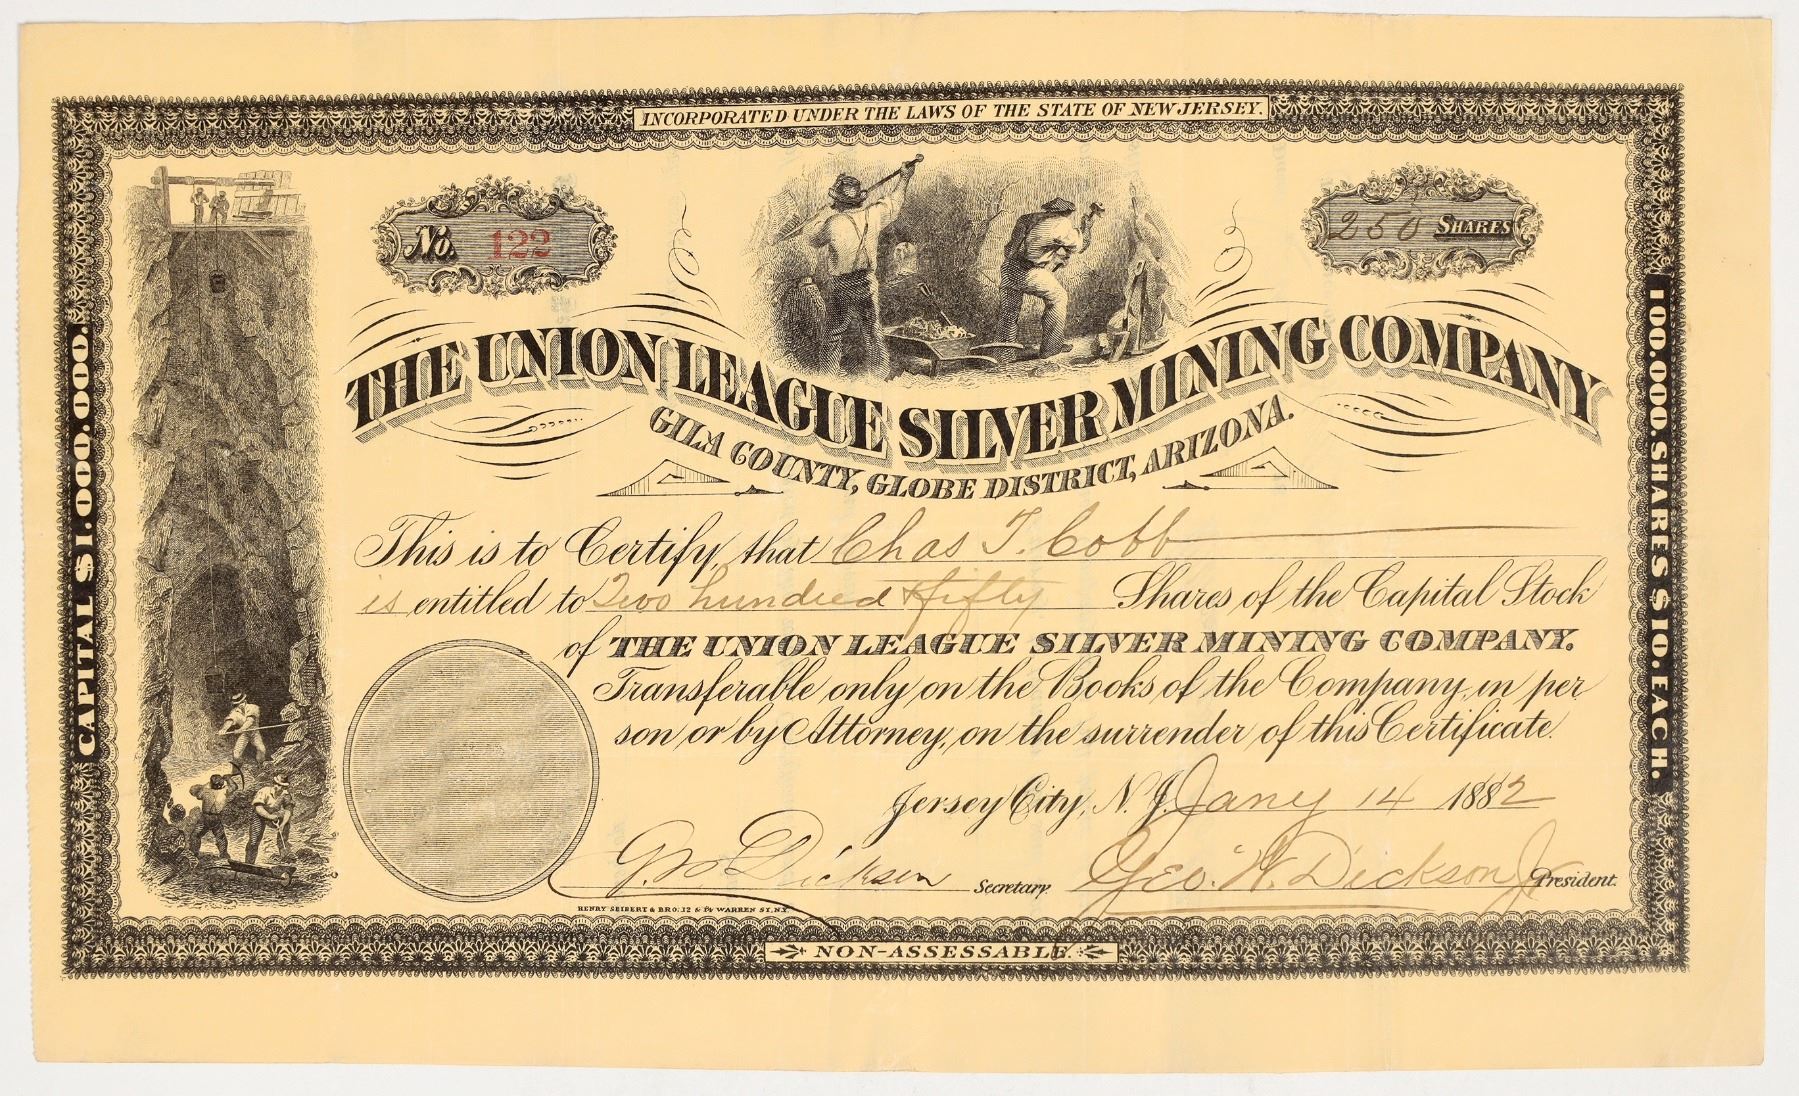 INCORPORATED UNDER THE LAWS OF THE STATE OF NEW JERSEY.
No. 122
250 SHARES
THE UNION LEAGUE SILVER MINING COMPANY
GILA COUNTY, GLOBE DISTRICT, ARIZONA.
CAPITAL $1.000.000.
100.000 SHARES $10. EACH.
This is to Certify, that Chas T. Cobb
is entitled to Two hundred & fifty Shares of the Capital Stock
of THE UNION LEAGUE SILVER MINING COMPANY.
Transferable only on the Books of the Company, in per
son or by Attorney, on the surrender of this Certificate.
Jersey City, N.J. Jany 14 1882
Dickson Secretary. Geo. W. Dickson Jr President.
HENRY SEIBERT & BRO. 12 & 14 WARREN ST. N.Y.
NON-ASSESSABLE.